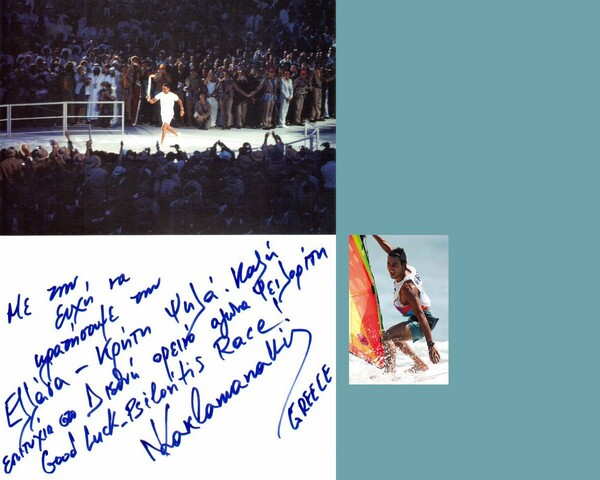 Με την
ευχή να
κρατήσουμε την
Ελλάδα - Κρήτη Ψηλά. Καλή
επιτυχία στο Διεθνή ορεινό αγώνα Ψειλορίτη
Good Luck - Psiloritis Race!
N Kaklamanakis
GREECE